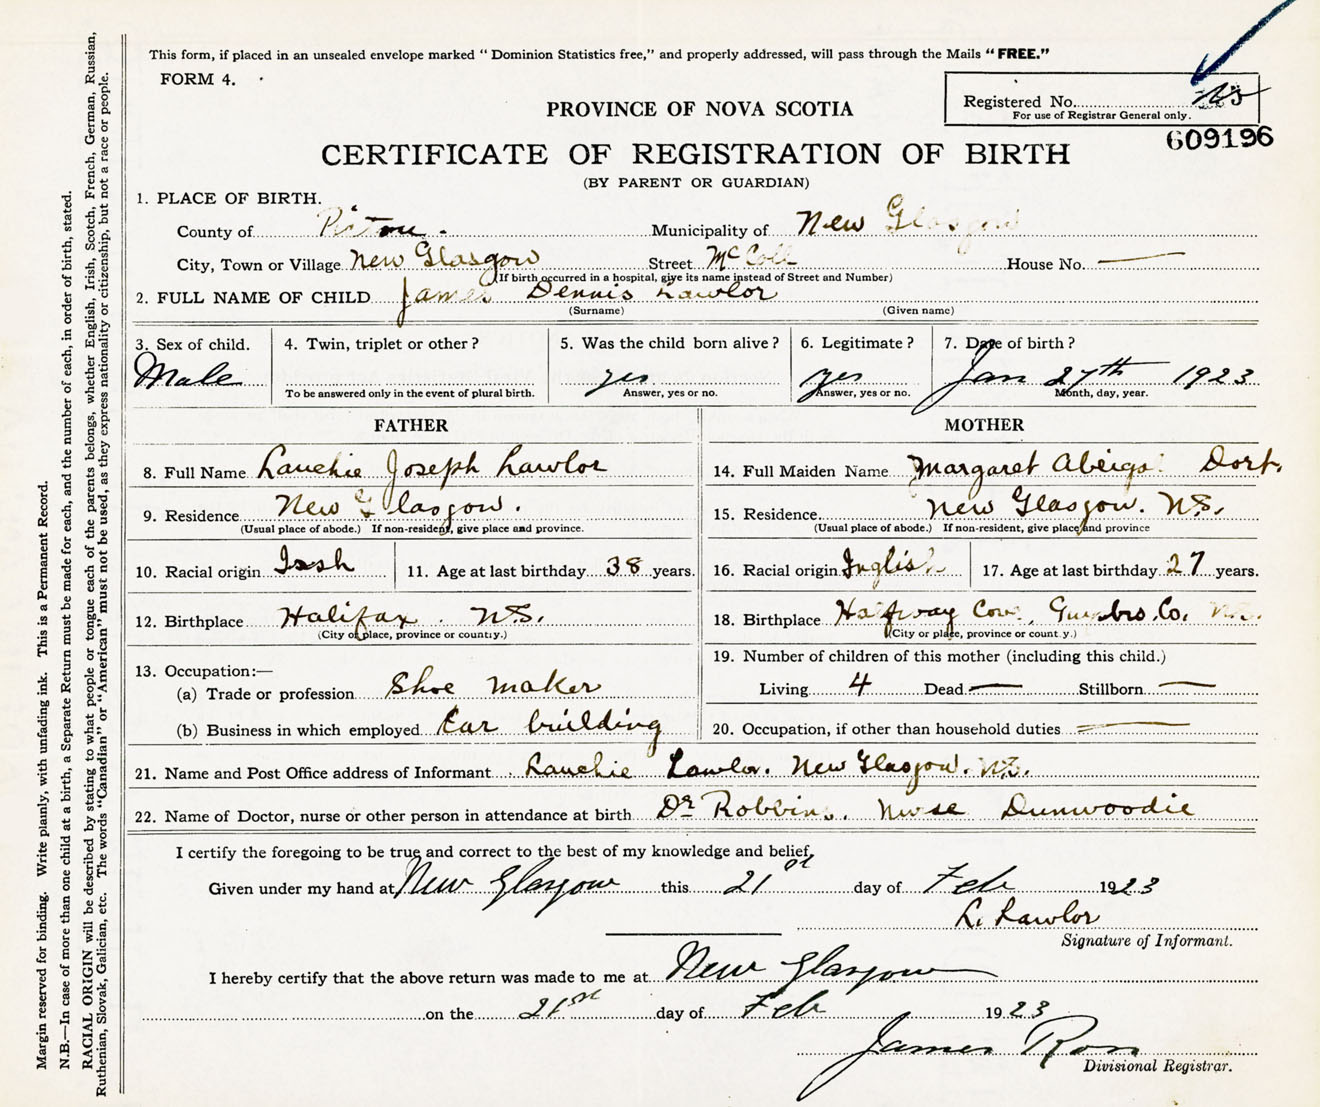 This form, if placed in an unsealed envelope marked “ Dominion Statistics free,” and properly addressed, will pass through the Mails “ FREE.”
FORM 4.
Registered No.
For use of Registrar General only.
609196
PROVINCE OF NOVA SCOTIA
CERTIFICATE OF REGISTRATION OF BIRTH
(BY PARENT OR GUARDIAN)
1. PLACE OF BIRTH.
County of Pictou. Municipality of New Glasgow
City, Town or Village New Glasgow Street McColl House No. —
(If birth occurred in a hospital, give its name instead of Street and Number)
2. FULL NAME OF CHILD James Dennis Lawlor
(Surname) (Given name)
3. Sex of child. Male
4. Twin, triplet or other ?
To be answered only in the event of plural birth.
5. Was the child born alive ? yes
Answer, yes or no.
6. Legitimate ? yes
Answer, yes or no.
7. Date of birth ? Jan 27th 1923
Month, day, year.
FATHER
8. Full Name Lauchie Joseph Lawlor
9. Residence New Glasgow.
(Usual place of abode.) If non-resident, give place and province.
10. Racial origin Irish 11. Age at last birthday 38 years.
12. Birthplace Halifax. N.S.
(City or place, province or country.)
13. Occupation:—
(a) Trade or profession Shoe maker
(b) Business in which employed Car building
MOTHER
14. Full Maiden Name Margaret Dort
15. Residence New Glasgow. N.S.
(Usual place of abode.) If non-resident, give place and province
16. Racial origin Inglish 17. Age at last birthday 27 years.
18. Birthplace Halfway Cove, Co. N.S.
(City or place, province or county.)
19. Number of children of this mother (including this child.)
Living 4 Dead — Stillborn —
20. Occupation, if other than household duties —
21. Name and Post Office address of Informant Lauchie Lawlor. New Glasgow. N.S.
22. Name of Doctor, nurse or other person in attendance at birth Dr Robbins. Nurse Dunwoodie
I certify the foregoing to be true and correct to the best of my knowledge and belief.
Given under my hand at New Glasgow this 21st day of Feb 1923
L. Lawlor
Signature of Informant.
I hereby certify that the above return was made to me at New Glasgow
on the 21st day of Feb 1923
James Ross
Divisional Registrar.
Margin reserved for binding. Write plainly, with unfading ink. This is a Permanent Record.
N.B.—In case of more than one child at a birth, a Separate Return must be made for each, and the number of each, in order of birth, stated.
RACIAL ORIGIN will be described by stating to what people or tongue each of the parents belongs, whether English, Irish, Scotch, French, German, Russian,
Ruthenian, Slovak, Galician, etc. The words “Canadian” or “American” must not be used, as they express nationality or citizenship, but not a race or people.